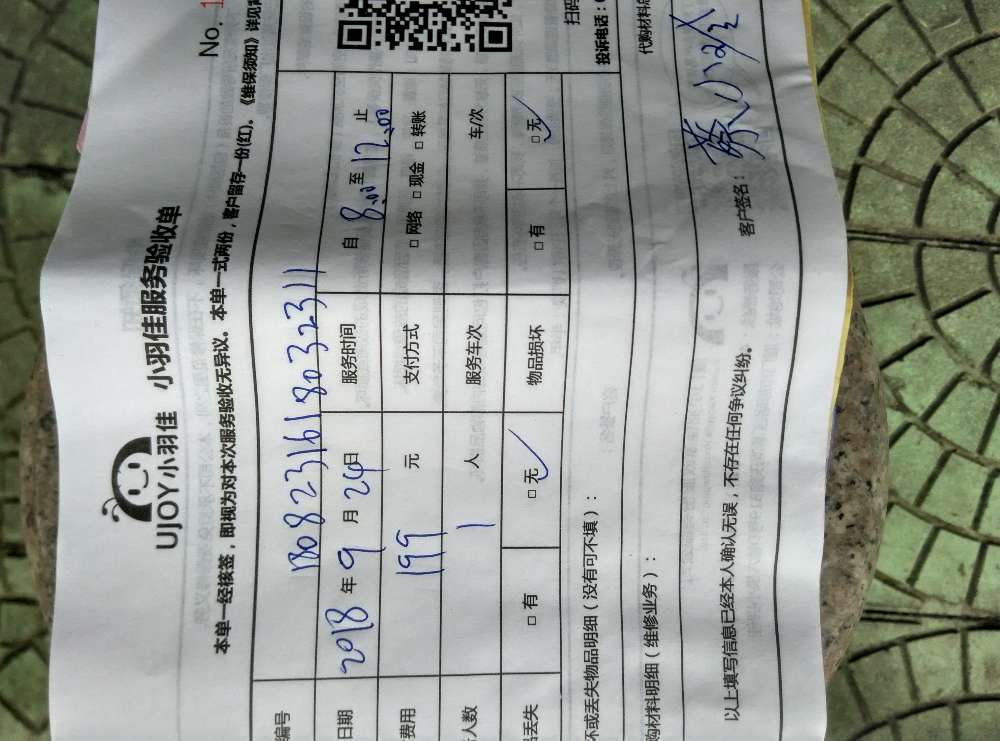 No. 1
扫码
投诉电话:
UJOY小羽佳 小羽佳服务验收单
本单一经核签,即视为对本次服务验收无异议。本单一式两份,客户留存一份(红)。《维保须知》详见背
编号 18082316180323211
日期 2018 年 9 月 24 日 服务时间 自 8:00 至 12:00 止
费用 199 元 支付方式 □ 网络 □ 现金 □ 转账
人数 1 人 服务车次 车/次
品丢失 □ 有 □ 无 ✓ 物品损坏 □ 有 □ 无 ✓
坏或丢失物品明细(没有可不填):
购材料明细(维修业务): 代购材料总
以上填写信息已经本人确认无误,不存在任何争议纠纷。 客户签名: